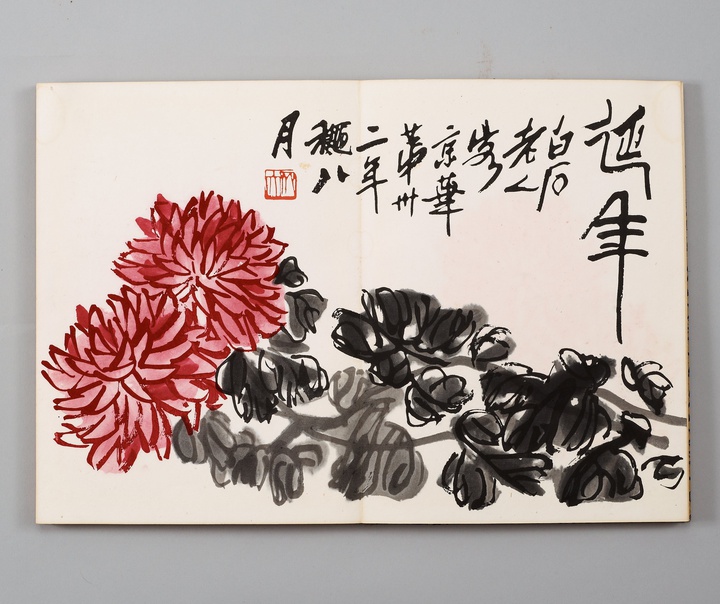 延年
白石
老人
客
京華
第卅
二年
穐八
月